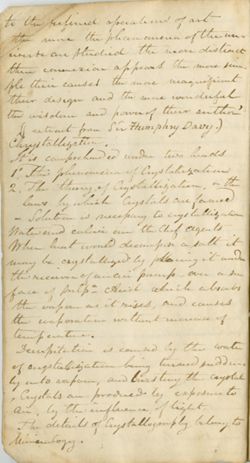 to the refined speculations of art
the more the phenomena of the uni-
verse are studied the more distinct
their connexion appears the more sim-
ple their causes the more magnificent
their design and the more wonderful
the wisdom and power of their author
(extract from Sir Humphry Davy)
Chrystallization.
It is comprehended under two heads
1. The phenomena of Crystallization
2. The theory of Crystallization, or the
laws by which Crystals are formed
- Solution is necessary to crystallization
Water and caloric are the chief agents
When heat would decompose a salt it
may be crystallized by placing it under
the receiver of an air pump, over a sur
face of Sulpc Acid which absorbs
the vapour as it rises, and causes
the evaporation without increase of
temperature.
Decrepitation is caused by the water
of crystallization being turned sudden
ly into vapour, and bursting the crystal
Crystals are produced by exposure to
Air, by the influence of light.
The details of Crystallography belong to
Mineralogy.